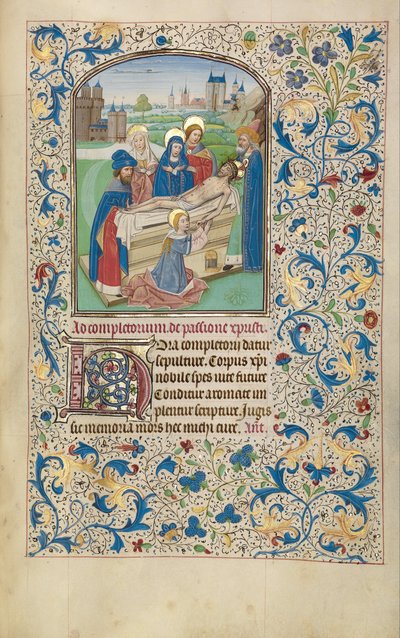 Ad completorium. de passione xpristi.
Hora completorij datur
sepulture. Corpus xpi
nobile spes vite future
Conditur aromate im
plentur scripture. Jugis
sic memoria mors hec michi cure. Ant.